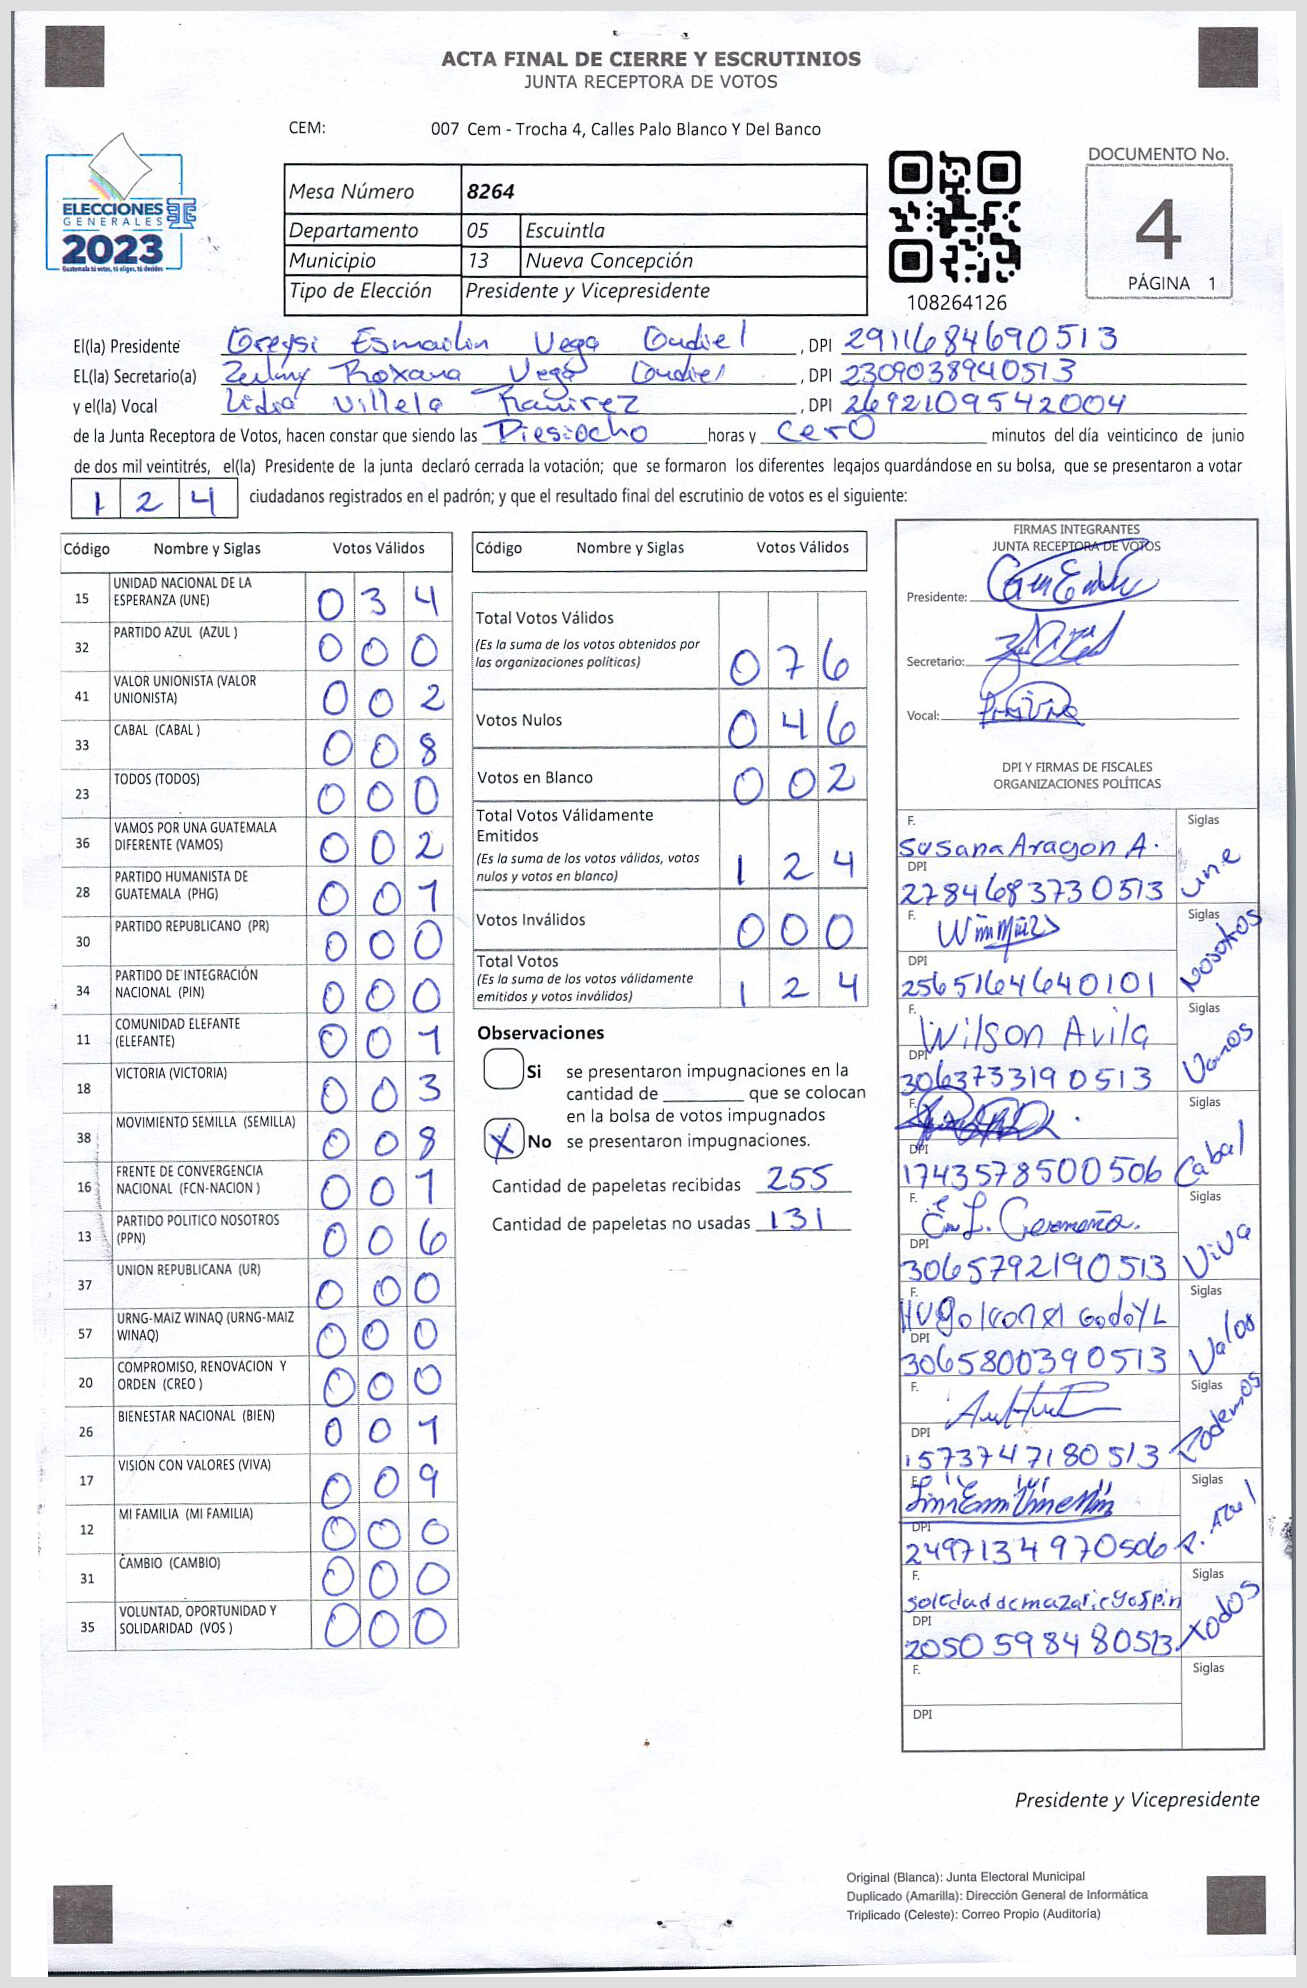 ACTA FINAL DE CIERRE Y ESCRUTINIOS
JUNTA RECEPTORA DE VOTOS
CEM: 007 Cem - Trocha 4, Calles Palo Blanco Y Del Banco
ELECCIONES
GENERALES
2023
Guatemala tú votas, tú eliges, tú decides
Mesa Número 8264
Departamento 05 Escuintla
Municipio 13 Nueva Concepción
Tipo de Elección Presidente y Vicepresidente
108264126
DOCUMENTO No.
4
PÁGINA 1
El(la) Presidente Greysi Esmailin Vega Gudiel, DPI 2911684690513
EL(la) Secretario(a) Zulmy Roxana Vega Gudiel, DPI 2309038940513
y el(la) Vocal Lidia Villela Ramirez, DPI 2692109542004
de la Junta Receptora de Votos, hacen constar que siendo las Diesiocho horas y cero minutos del día veinticinco de junio
de dos mil veintitrés, el(la) Presidente de la junta declaró cerrada la votación; que se formaron los diferentes legajos guardándose en su bolsa, que se presentaron a votar
1 2 4 ciudadanos registrados en el padrón; y que el resultado final del escrutinio de votos es el siguiente:
Código Nombre y Siglas Votos Válidos
15 UNIDAD NACIONAL DE LA ESPERANZA (UNE) 0 3 4
32 PARTIDO AZUL (AZUL ) 0 0 0
41 VALOR UNIONISTA (VALOR UNIONISTA) 0 0 2
33 CABAL (CABAL ) 0 0 8
23 TODOS (TODOS) 0 0 0
36 VAMOS POR UNA GUATEMALA DIFERENTE (VAMOS) 0 0 2
28 PARTIDO HUMANISTA DE GUATEMALA (PHG) 0 0 1
30 PARTIDO REPUBLICANO (PR) 0 0 0
34 PARTIDO DE INTEGRACIÓN NACIONAL (PIN) 0 0 0
11 COMUNIDAD ELEFANTE (ELEFANTE) 0 0 1
18 VICTORIA (VICTORIA) 0 0 3
38 MOVIMIENTO SEMILLA (SEMILLA) 0 0 8
16 FRENTE DE CONVERGENCIA NACIONAL (FCN-NACION ) 0 0 1
13 PARTIDO POLITICO NOSOTROS (PPN) 0 0 6
37 UNION REPUBLICANA (UR) 0 0 0
57 URNG-MAIZ WINAQ (URNG-MAIZ WINAQ) 0 0 0
20 COMPROMISO, RENOVACION Y ORDEN (CREO ) 0 0 0
26 BIENESTAR NACIONAL (BIEN) 0 0 1
17 VISION CON VALORES (VIVA) 0 0 9
12 MI FAMILIA (MI FAMILIA) 0 0 0
31 CAMBIO (CAMBIO) 0 0 0
35 VOLUNTAD, OPORTUNIDAD Y SOLIDARIDAD (VOS ) 0 0 0
Código Nombre y Siglas Votos Válidos
Total Votos Válidos
(Es la suma de los votos obtenidos por
las organizaciones políticas) 0 7 6
Votos Nulos 0 4 6
Votos en Blanco 0 0 2
Total Votos Válidamente
Emitidos
(Es la suma de los votos válidos, votos
nulos y votos en blanco) 1 2 4
Votos Inválidos 0 0 0
Total Votos
(Es la suma de los votos válidamente
emitidos y votos inválidos) 1 2 4
Observaciones
Si se presentaron impugnaciones en la
cantidad de ________ que se colocan
en la bolsa de votos impugnados
X No se presentaron impugnaciones.
Cantidad de papeletas recibidas 255
Cantidad de papeletas no usadas 131
FIRMAS INTEGRANTES
JUNTA RECEPTORA DE VOTOS
Presidente:
Secretario:
Vocal:
DPI Y FIRMAS DE FISCALES
ORGANIZACIONES POLÍTICAS
F. Susana Aragon A. Siglas
DPI 2784683730513 une
F. Siglas
DPI 2565164640101 Nosotros
F. Wilson Avila Siglas
DPI 3063733190513 Vamos
F. Siglas
DPI 1743578500506 Cabal
F. Siglas
DPI 3065792190513 ViVa
F. Siglas
DPI 3065800390513 Valor
F. Siglas
DPI 1573747180513 Podemos
F. Siglas
DPI 2497134970506 P. Azul
F. Siglas
DPI 2050598480513 Todos
F. Siglas
DPI
Presidente y Vicepresidente
Original (Blanca): Junta Electoral Municipal
Duplicado (Amarilla): Dirección General de Informática
Triplicado (Celeste): Correo Propio (Auditoría)